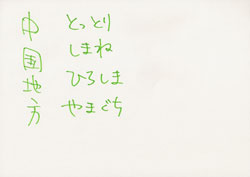 中国地方
とっとり
しまね
ひろしま
やまぐち